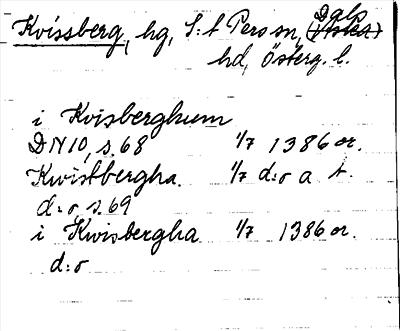 Kvissberg, hg, S:t Pers sn, Dals
hd, Österg. l.
i Kvisberghum
DN 10, s. 68 1/7 1386 or.
Kwistbergha 1/7 d:o a t.
d:o, s. 69
i Kwisbergha 1/7 1386 or.
d:o